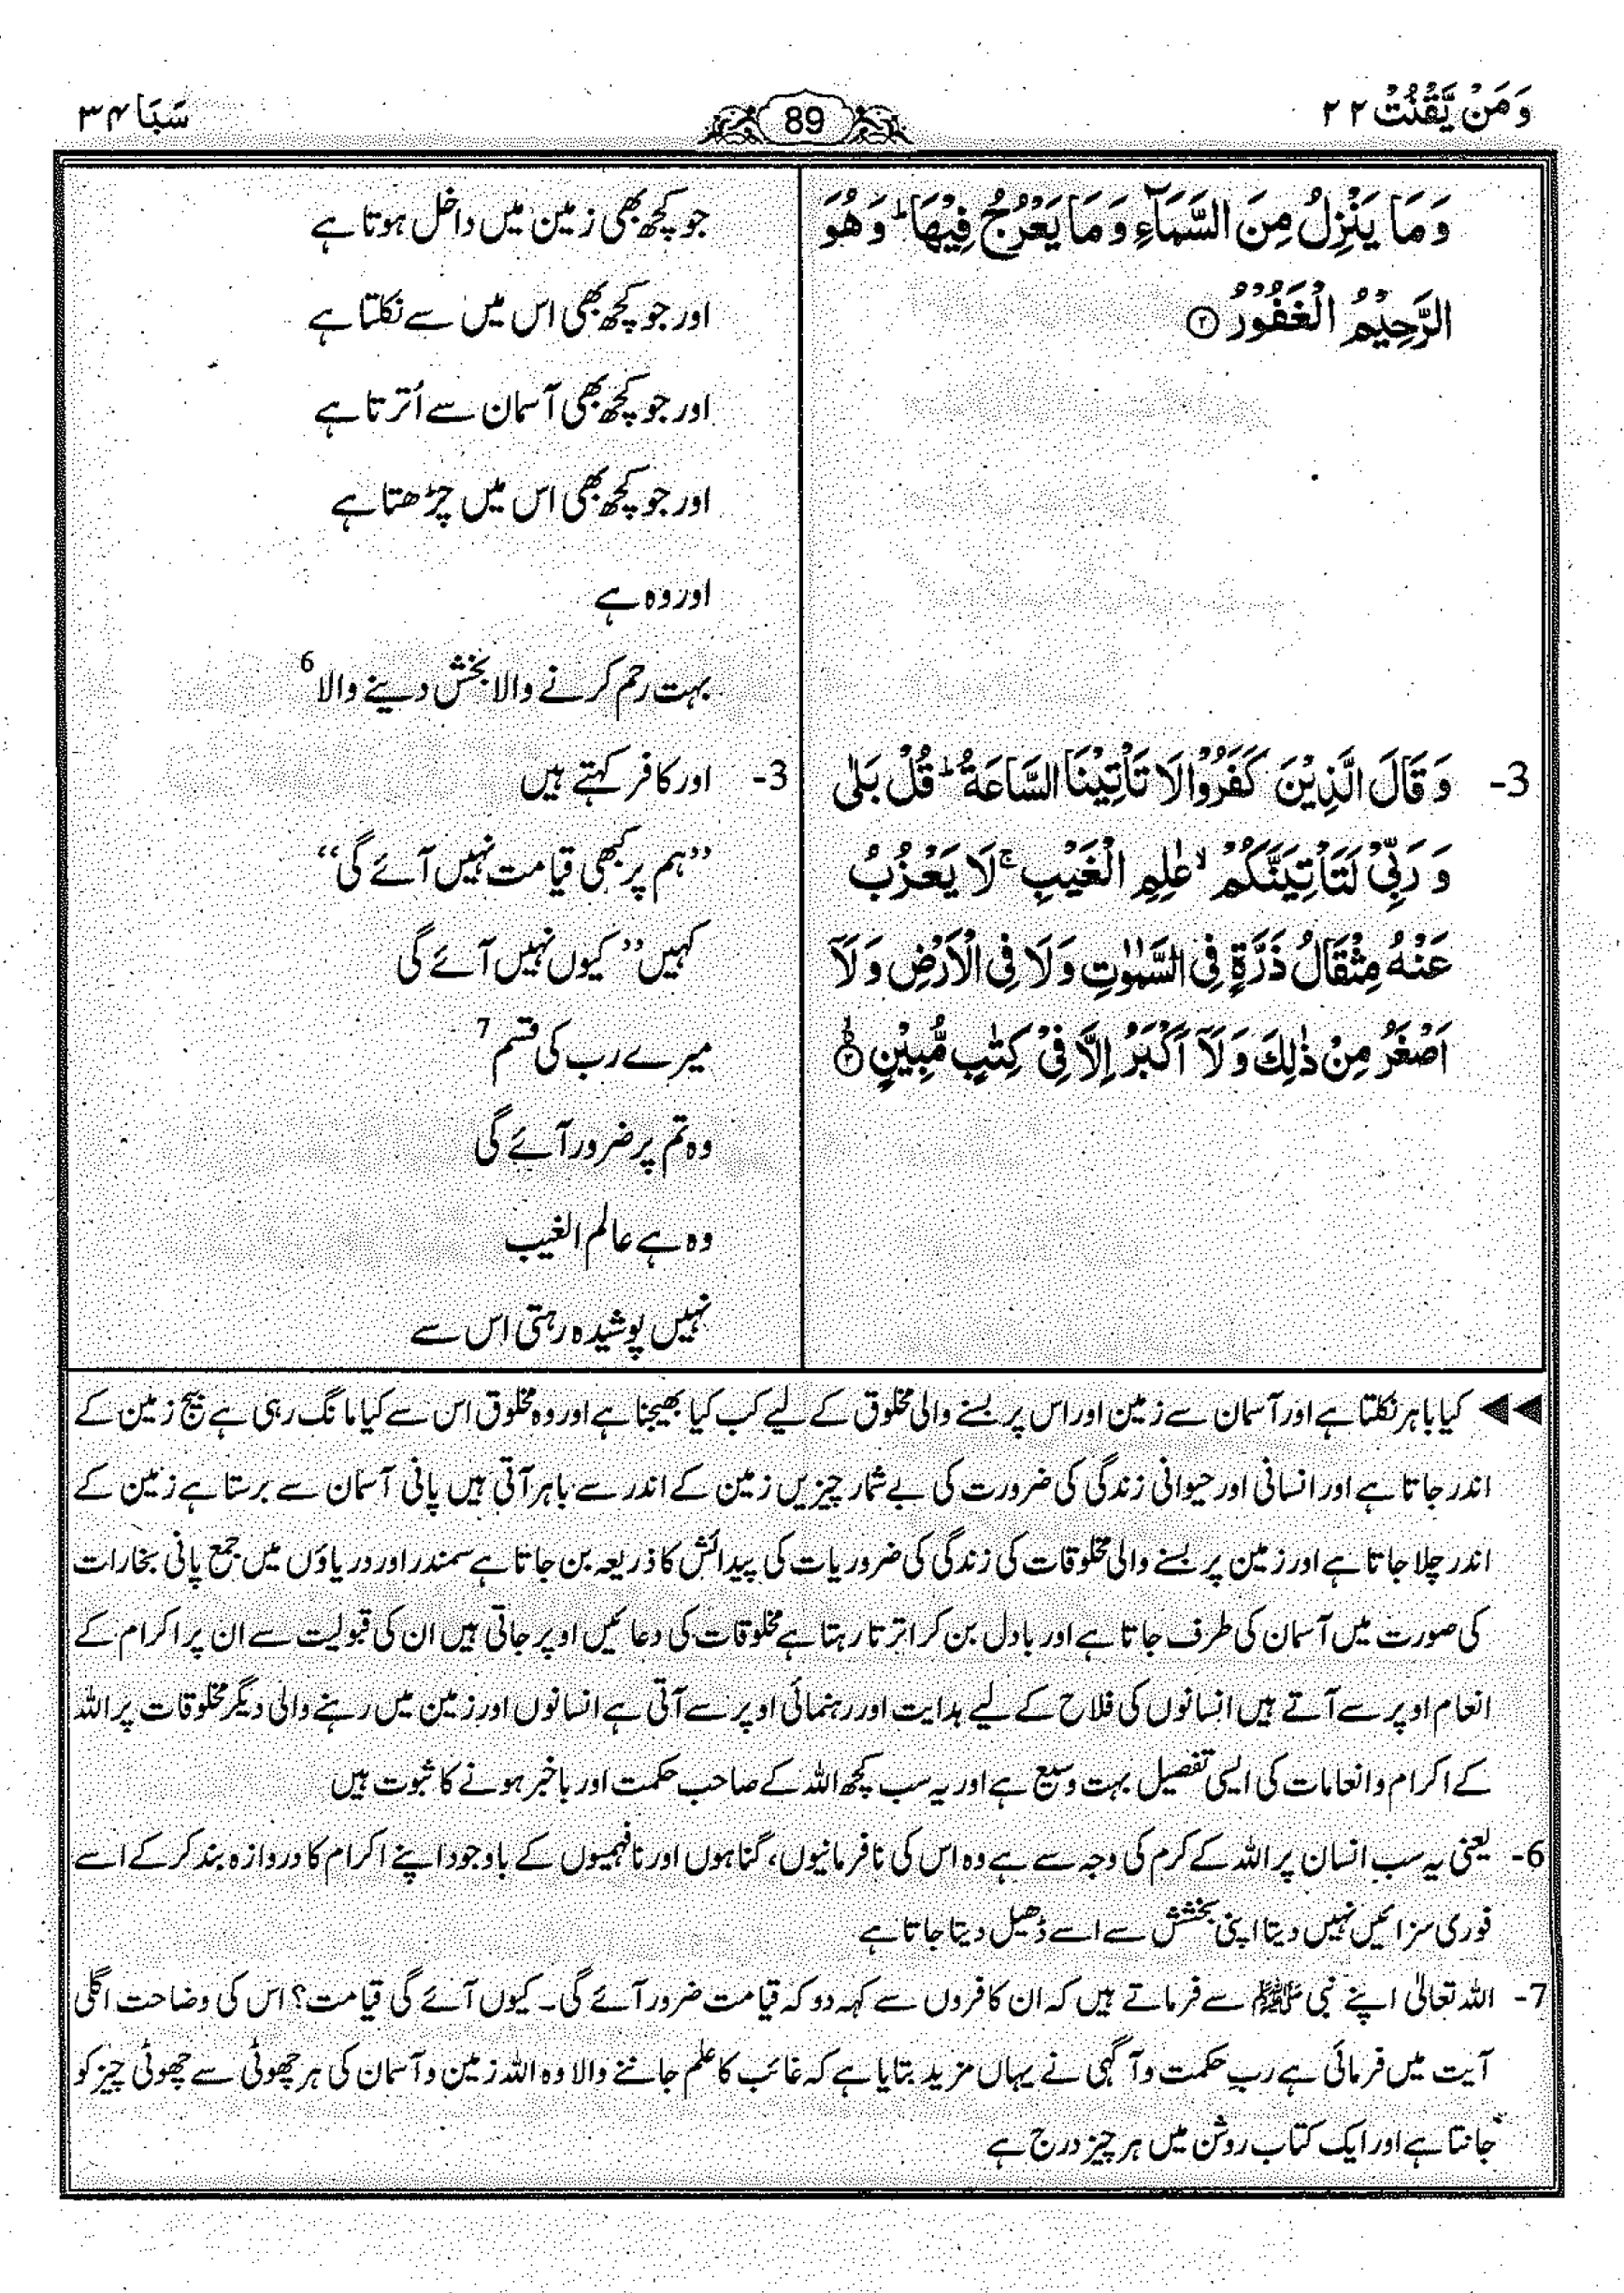 وَمَنْ يَّقْنُتْ ۲۲
89
سَبَا ۳۴
وَمَا يَنْزِلُ مِنَ السَّمَآءِ وَمَا يَعْرُجُ فِيْهَا ؕ وَهُوَ
الرَّحِيْمُ الْغَفُوْرُ ۲
3- وَقَالَ الَّذِيْنَ كَفَرُوْا لَا تَاْتِيْنَا السَّاعَةُ ؕ قُلْ بَلٰى
وَرَبِّيْ لَتَاْتِيَنَّكُمْ ۙ عٰلِمِ الْغَيْبِ ۚ لَا يَعْزُبُ
عَنْهُ مِثْقَالُ ذَرَّةٍ فِى السَّمٰوٰتِ وَلَا فِى الْاَرْضِ وَلَاۤ
اَصْغَرُ مِنْ ذٰلِكَ وَلَاۤ اَكْبَرُ اِلَّا فِيْ كِتٰبٍ مُّبِيْنٍ ۙ
جو کچھ بھی زمین میں داخل ہوتا ہے
اور جو کچھ بھی اس میں سے نکلتا ہے
اور جو کچھ بھی آسمان سے اُترتا ہے
اور جو کچھ بھی اس میں چڑھتا ہے
اور وہ ہے
بہت رحم کرنے والا بخش دینے والا 6
3- اور کافر کہتے ہیں
”ہم پر کبھی قیامت نہیں آئے گی“
کہیں ”کیوں نہیں آئے گی
میرے رب کی قسم 7
وہ تم پر ضرور آئے گی
وہ ہے عالم الغیب
نہیں پوشیدہ رہتی اس سے
◄◄ کیا باہر نکلتا ہے اور آسمان سے زمین اور اس پر بسنے والی مخلوق کے لیے کب کیا بھیجنا ہے اور وہ مخلوق اس سے کیا مانگ رہی ہے بیج زمین کے
اندر جاتا ہے اور انسانی اور حیوانی زندگی کی ضرورت کی بے شمار چیزیں زمین کے اندر سے باہر آتی ہیں پانی آسمان سے برستا ہے زمین کے
اندر چلا جاتا ہے اور زمین پر بسنے والی مخلوقات کی زندگی کی ضروریات کی پیدائش کا ذریعہ بن جاتا ہے سمندر اور دریاؤں میں جمع پانی بخارات
کی صورت میں آسمان کی طرف جاتا ہے اور بادل بن کر اترتا رہتا ہے مخلوقات کی دعائیں اوپر جاتی ہیں ان کی قبولیت سے ان پر اکرام کے
انعام اوپر سے آتے ہیں انسانوں کی فلاح کے لیے ہدایت اور رہنمائی اوپر سے آتی ہے انسانوں اور زمین میں رہنے والی دیگر مخلوقات پر اللہ
کے اکرام و انعامات کی ایسی تفصیل بہت وسیع ہے اور یہ سب کچھ اللہ کے صاحب حکمت اور باخبر ہونے کا ثبوت ہیں
6- یعنی یہ سب انسان پر اللہ کے کرم کی وجہ سے ہے وہ اس کی نافرمانیوں، گناہوں اور نافہمیوں کے باوجود اپنے اکرام کا دروازہ بند کر کے اسے
فوری سزائیں نہیں دیتا اپنی بخشش سے اسے ڈھیل دیتا جاتا ہے
7- اللہ تعالٰی اپنے نبی ﷺ سے فرماتے ہیں کہ ان کافروں سے کہہ دو کہ قیامت ضرور آئے گی۔ کیوں آئے گی قیامت؟ اس کی وضاحت اگلی
آیت میں فرمائی ہے ربِ حکمت و آگہی نے یہاں مزید بتایا ہے کہ غائب کا علم جاننے والا وہ اللہ زمین و آسمان کی ہر چھوٹی سے چھوٹی چیز کو
جانتا ہے اور ایک کتاب روشن میں ہر چیز درج ہے